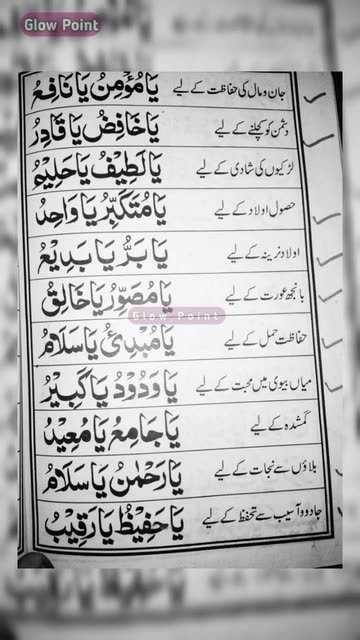 Glow Point
جان و مال کی حفاظت کے لیے يَا مُؤْمِنُ يَا نَافِعُ
دشمن کو کچلنے کے لیے يَا خَافِضُ يَا قَادِرُ
لڑکیوں کی شادی کے لیے يَا لَطِيْفُ يَا حَلِيْمُ
حصول اولاد کے لیے يَا مُتَكَبِّرُ يَا وَاحِدُ
اولاد نرینہ کے لیے يَا بَرُّ يَا بَدِيْعُ
بانجھ عورت کے لیے يَا مُصَوِّرُ يَا خَالِقُ
Glow Point
حفاظت حمل کے لیے يَا مُبْدِئُ يَا سَلَامُ
میاں بیوی میں محبت کے لیے يَا وَدُوْدُ يَا كَبِيْرُ
گمشدہ کے لیے يَا جَامِعُ يَا مُعِيْدُ
بلاؤں سے نجات کے لیے يَا رَحْمٰنُ يَا سَلَامُ
جادو و آسیب سے تحفظ کے لیے يَا حَفِيْظُ يَا رَقِيْبُ